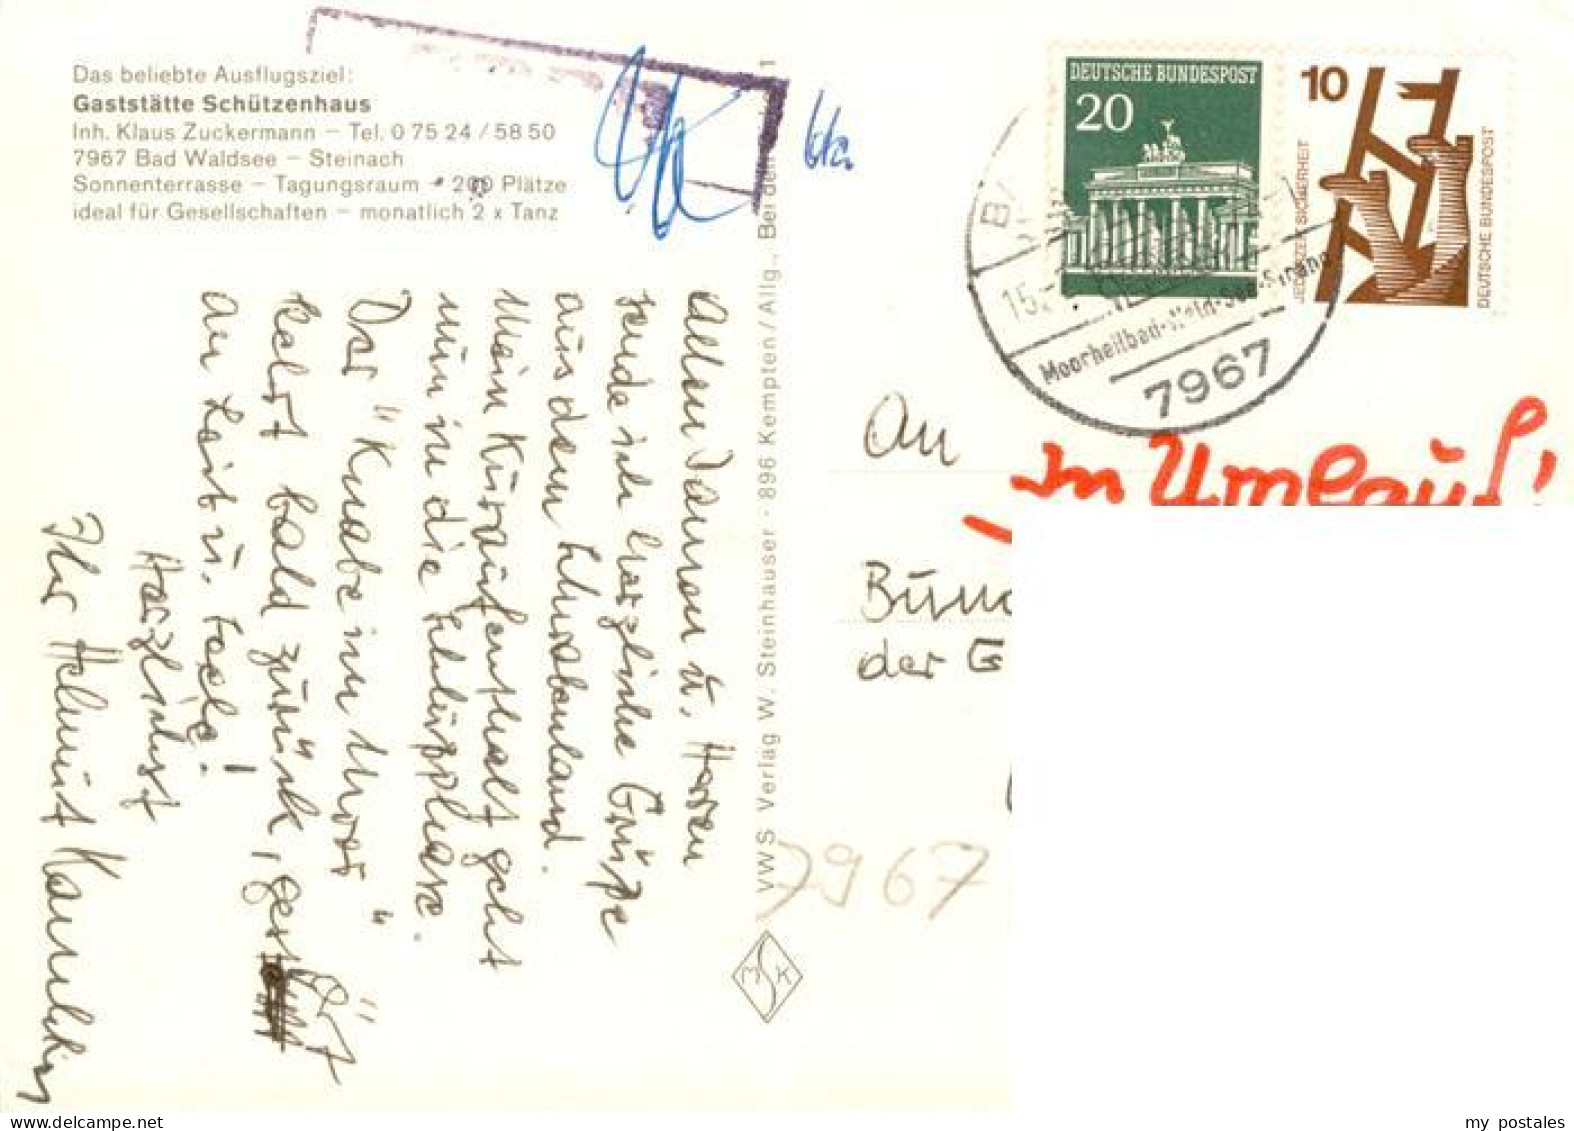 Das beliebte Ausflugsziel:
Gaststätte Schützenhaus
Inh. Klaus Zuckermann – Tel. 0 75 24 / 58 50
7967 Bad Waldsee – Steinach
Sonnenterrasse – Tagungsraum – 200 Plätze
ideal für Gesellschaften – monatlich 2 x Tanz
Allen Damen u. Herren
sende ich herzliche Grüße
aus dem Schwabenland.
Mein Kuraufenthalt geht
nun in die
Das "Knabe im Moor"
kehrt bald zurück,
an Leib u. Seele!
Herzlichst
Ihr Helmut
VWS Verlag W. Steinhauser · 896 Kempten/Allg., Bei den 1
MSK
DEUTSCHE BUNDESPOST
20
10
JEDERZEIT SICHERHEIT
DEUTSCHE BUNDESPOST
15.
Moorheilbad
7967
An
In Umlauf!
der G
7967
my postales